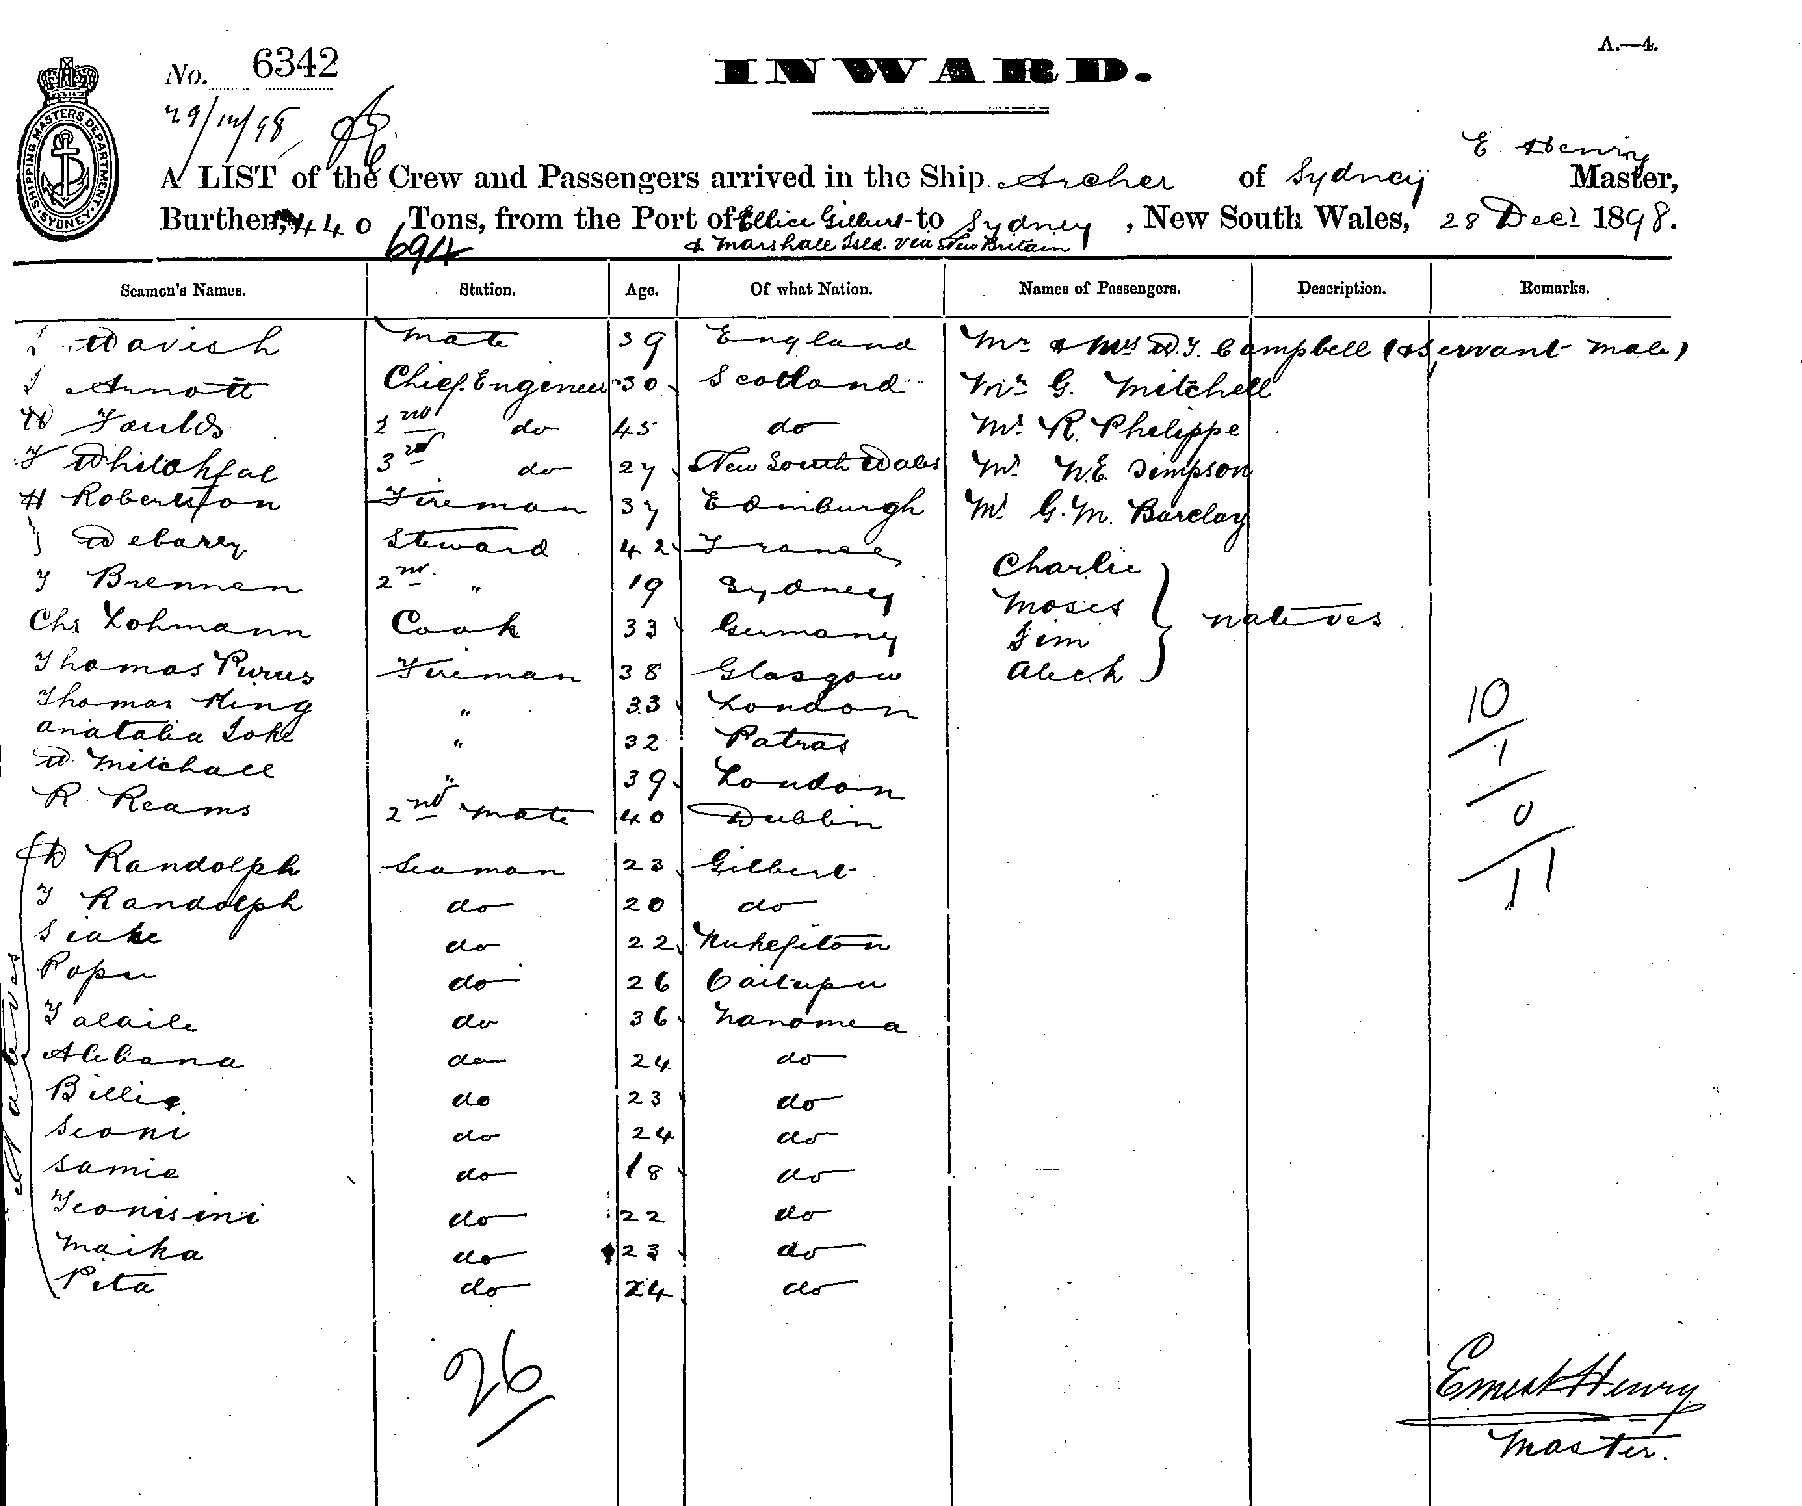 A.—4.
No. 6342
INWARD.
SHIPPING MASTERS DEPARTMENT SYDNEY
29/12/98
E Henry
A LIST of the Crew and Passengers arrived in the Ship Archer of Sydney Master,
Burthen, 440 Tons, from the Port of Ellice Gilbert to Sydney, New South Wales, 28 Decr 1898.
694 & Marshall Isld. via New Britain
Seamen's Names. Station. Age. Of what Nation. Names of Passengers. Description. Remarks.
Davish Mate 39 England Mr & Mrs W.J. Campbell (& Servant male)
Arnott Chief Engineer 30 Scotland Mr G. Mitchell
W Faulds 2nd do 45 do Mr R. Philippe
3rd do 27 New South Wales Mr Simpson
H Robertson Fireman 37 Edinburgh Mr G. M. Barclay
Steward 42 France Charlie
J Brennen 2nd " 19 Sydney Moses
Chs Lohmann Cook 33 Germany Jim natives
Thomas Fireman 38 Glasgow Aleck
Thomas King " 33 London 10
" 32 Patras 1
W. Mitchall " 39 London 0
R Reams 2nd Mate 40 Dublin 11
Natives
D Randolph Seaman 23 Gilbert
J Randolph do 20 do
Siake do 22 Nukefitou
Popu do 26 Oaitupu
Talaile do 36 Nanomea
Alebana do 24 do
Billie do 23 do
Seoni do 24 do
Samie do 18 do
Teonisini do 22 do
Maika do 23 do
Pita do 24 do
26
Ernest Henry
Master.